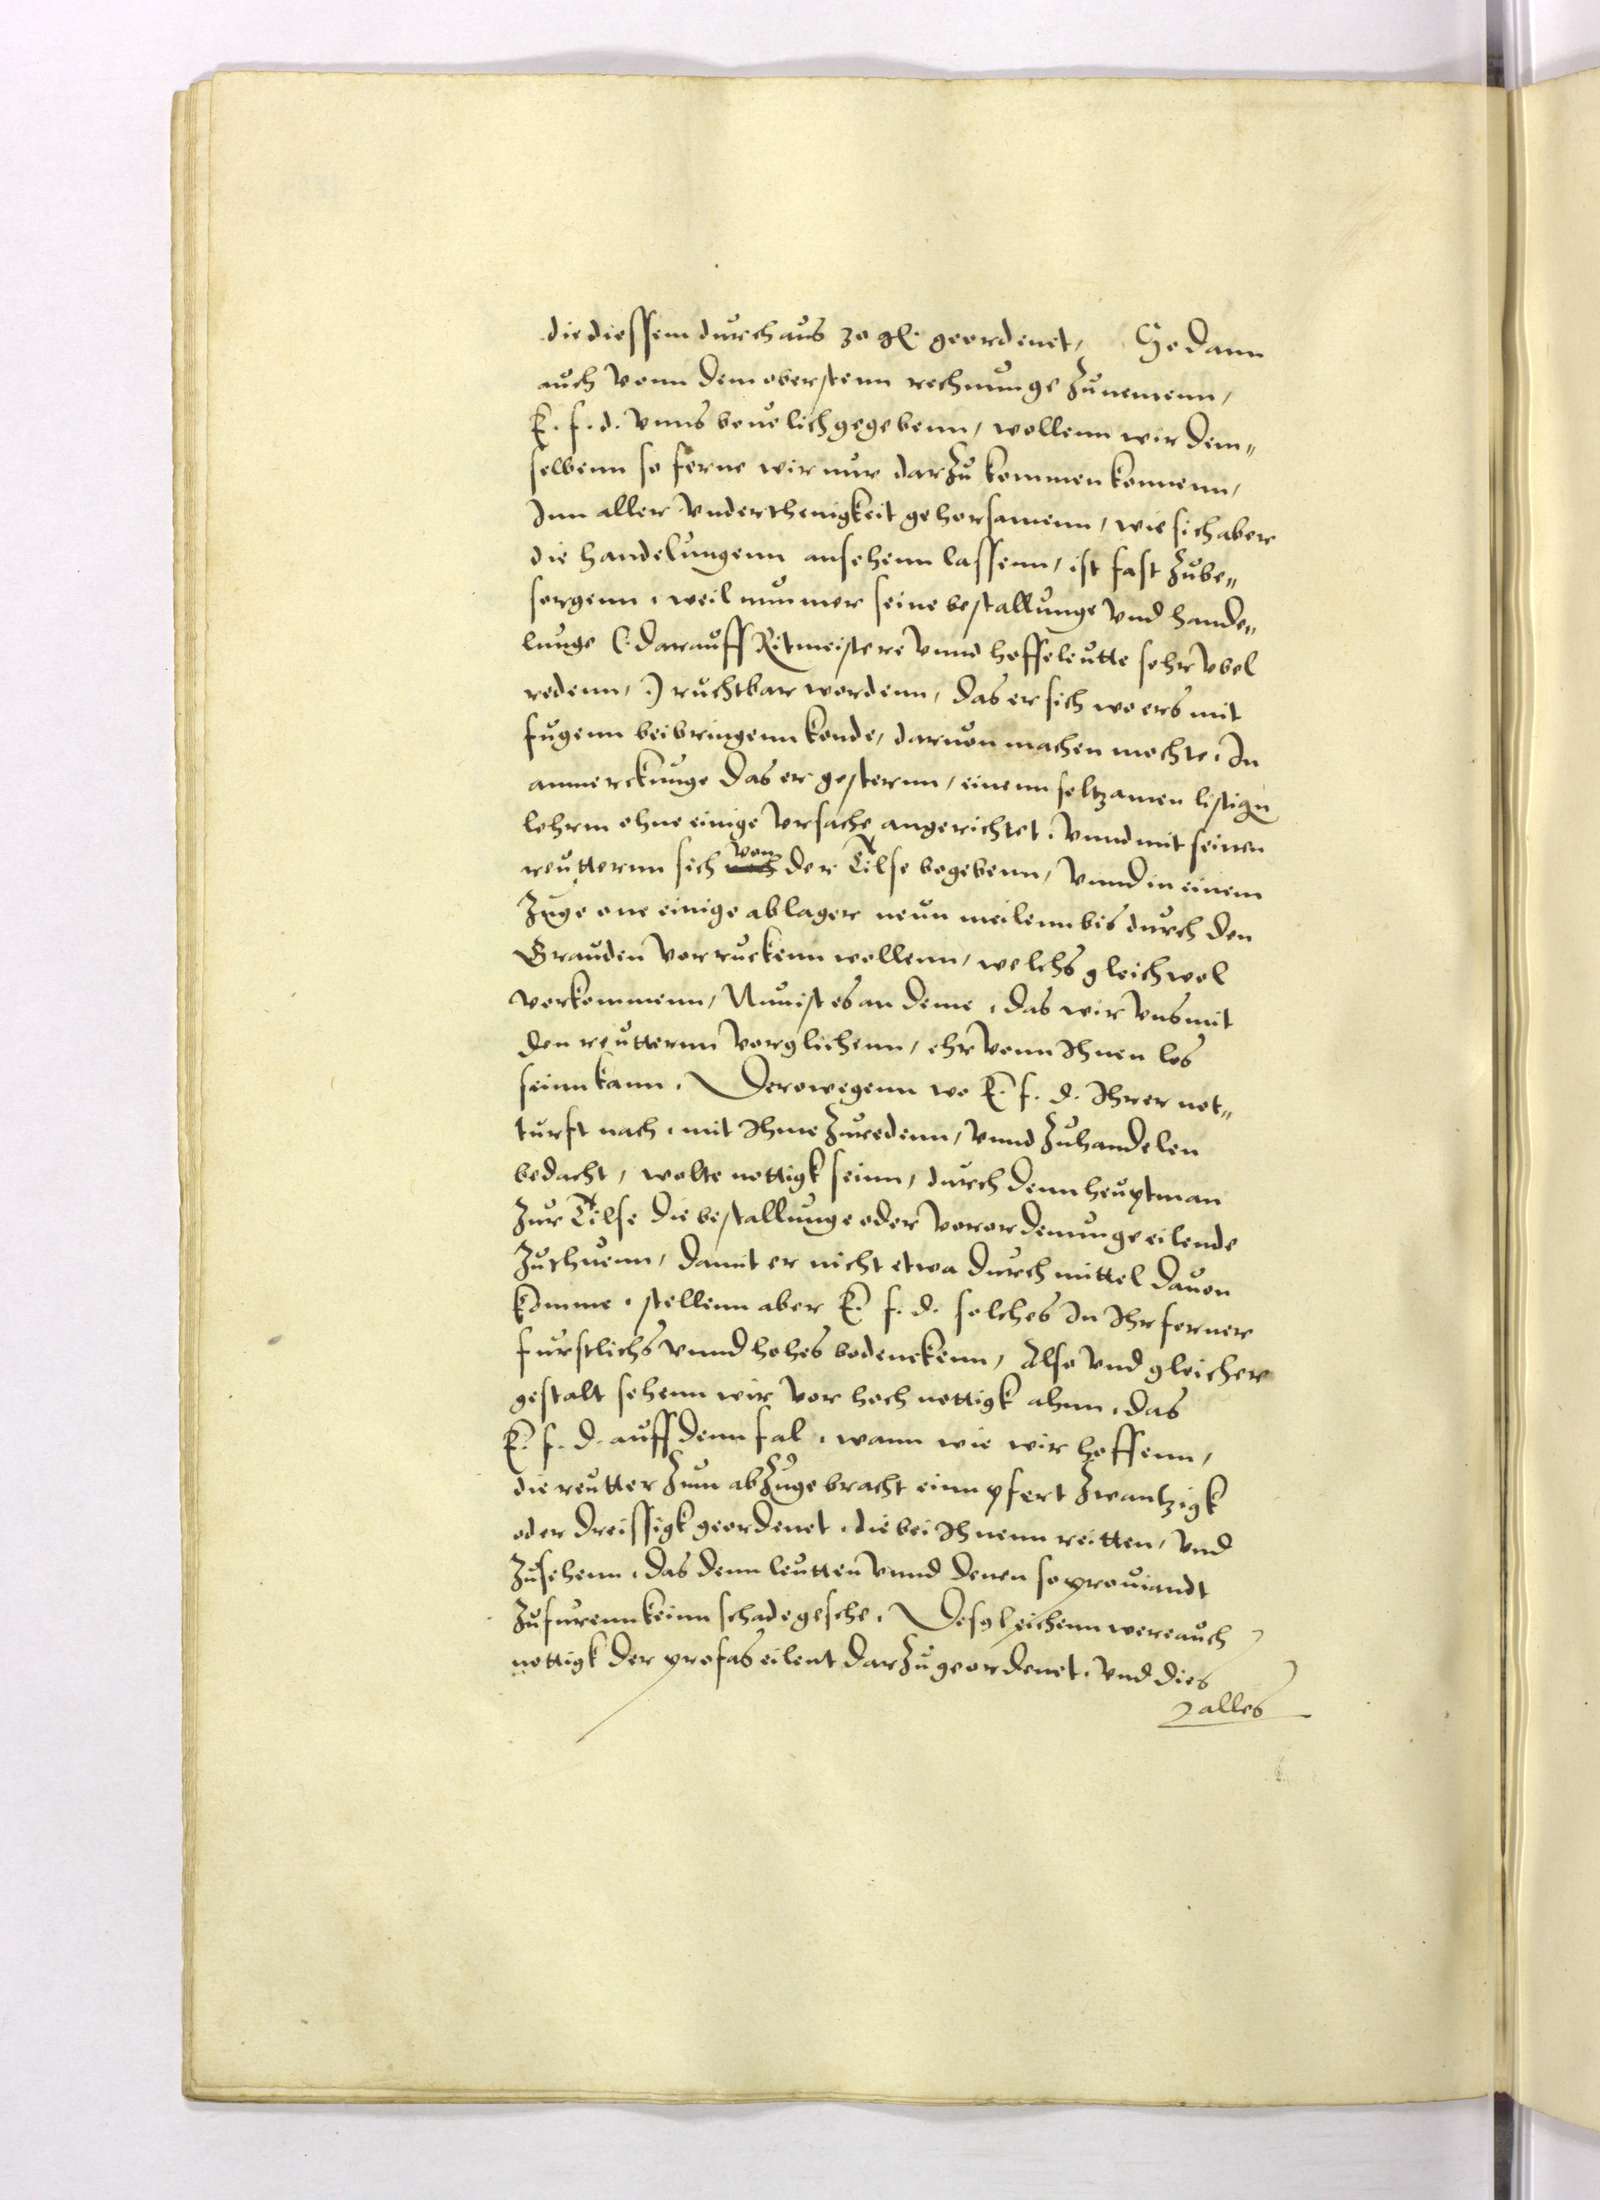 die diessem durchaus 30 gl. geordenet, So dann
auch vonn dem oberstenn rechnunge zunemenn,
E. f. d. vnns beuelich gegebenn, wollenn wir dem„
selbenn so ferne wir nur darzu kommen konnenn,
Inn aller vnderthenigkeit gehorsamenn, wie sich aber
die handelungenn ansehenn lassenn, ist fast zube„
sorgenn, weil nunmer seine bestallunge vnd hande„
lunge (: darauff Ritmeistere vnnd hoffeleutte sehr vbel
redenn, :) ruchtbar wordenn, das er sich wo ers mit
fugenn beibringenn konde, daruon machen mochte, In
anmerckunge das er gesternn, einenn seltzamen listign
lehrm ohne einige vrsache angerichtet, vnnd mit seinen
reutternn sich von der Tilse begebenn, vnnd in einem
zuge one einige ablager neun meilenn bis durch den
Grauden vorruckenn wollenn, welchs gleichwol
vorkommenn, Nun ist es an deme, das wir vns mit
den reutternn vorglichenn, ehr vonn Ihnen los
seinn kann, Derowegenn wo E. f. d. Ihrer not„
turft nach, mit Ihme zuredenn, vnnd zuhandelen
bedacht, wolte nottigk seinn, durch denn heuptman
zur Tilse die bestallunge oder vorordenunge eilende
zuthuenn, damit er nicht etwa durch mittel dauon
komme, stellenn aber E. f. d. solches In Ihr ferner
furstlichs vnnd hohes bedenckenn, Also vnd gleicher
gestalt sehenn wir vor hoch nottigk ahnn, das
E. f. d. auff denn fal, wann wie wir hoffenn,
die reutter zum abzuge bracht einn pfert zwantzigk
oder dreissigk geordenet, die bei Ihnenn reitten, vnd
zusehenn, das denn leutten vnnd denen so prouiandt
zufurenn keinn schade geschehe, Desgleichenn were auch
nottigk der profas eilent darzu geordenet, vnd dies
alles